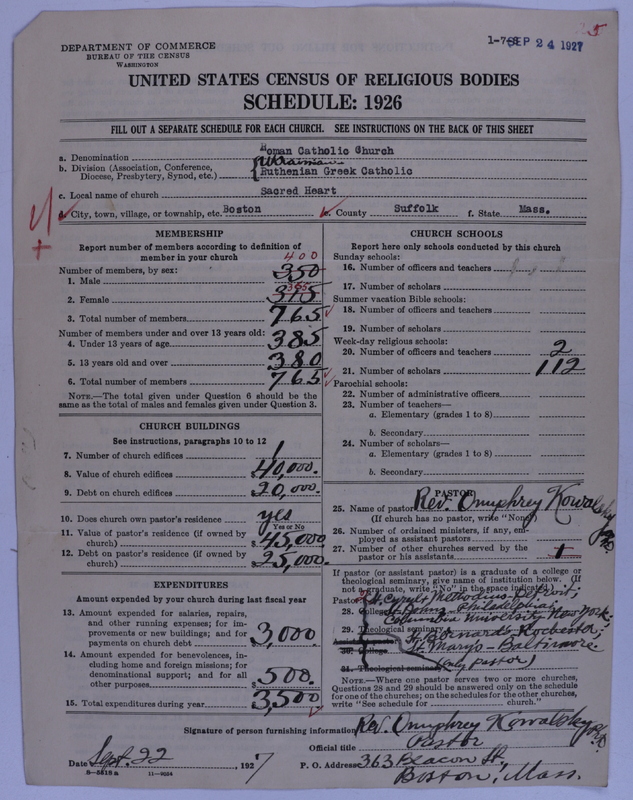 DEPARTMENT OF COMMERCE
BUREAU OF THE CENSUS
WASHINGTON
SEP 24 1927
5
UNITED STATES CENSUS OF RELIGIOUS BODIES
SCHEDULE: 1926
FILL OUT A SEPARATE SCHEDULE FOR EACH CHURCH. SEE INSTRUCTIONS ON THE BACK OF THIS SHEET
a. Denomination Roman Catholic Church
Ukrainian
b. Division (Association, Conference, Diocese, Presbytery, Synod, etc.) Ruthenian Greek Catholic
c. Local name of church Sacred Heart
d. City, town, village, or township, etc. Boston e. County Suffolk f. State Mass.
MEMBERSHIP
Report number of members according to definition of member in your church
400
Number of members, by sex:
1. Male 350
365
2. Female 315
3. Total number of members 765
Number of members under and over 13 years old:
4. Under 13 years of age 385
5. 13 years old and over 380
6. Total number of members 765
NOTE.—The total given under Question 6 should be same as the total of males and females given under Question 3.
CHURCH BUILDINGS
See instructions, paragraphs 10 to 12
7. Number of church edifices 1
8. Value of church edifices $ 40,000.
9. Debt on church edifices $ 20,000.
10. Does church own pastor's residence yes
Yes or No
11. Value of pastor's residence (if owned by church) $ 45,000
12. Debt on pastor's residence (if owned by church) $ 25,000.
EXPENDITURES
Amount expended by your church during last fiscal year
13. Amount expended for salaries, repairs, and other running expenses; for improvements or new buildings; and for payments on church debt $ 3,000
14. Amount expended for benevolences, including home and foreign missions; for denominational support; and for all other purposes $ 500.
15. Total expenditures during year $ 3,500
CHURCH SCHOOLS
Report here only schools conducted by this church
Sunday schools:
16. Number of officers and teachers
17. Number of scholars
Summer vacation Bible schools:
18. Number of officers and teachers
19. Number of scholars
Week-day religious schools:
20. Number of officers and teachers 2
21. Number of scholars 112
Parochial schools:
22. Number of administrative officers
23. Number of teachers—
a. Elementary (grades 1 to 8)
b. Secondary
24. Number of scholars—
a. Elementary (grades 1 to 8)
b. Secondary
PASTOR
25. Name of pastor Rev. Omuphrey Kowalsky
(If church has no pastor, write "None")
26. Number of ordained ministers, if any, employed as assistant pastors
27. Number of other churches served by the pastor or his assistants 1
If pastor (or assistant pastor) is a graduate of a college or theological seminary, give name of institution below. (If not a graduate, write "No" in the space indicated.)
Pastor: St. Cyril & Methodius Detroit;
28. College St. Johns - Philadelphia;
Columbia University New York;
29. Theological seminary St. Bernards - Rochester;
30. College St. Marys - Baltimore
31. Theological seminary (only pastor)
NOTE.—Where one pastor serves two or more churches, Questions 28 and 29 should be answered only on the schedule for one of the churches; on the schedules for the other churches, write "See schedule for church."
Signature of person furnishing information Rev. Omuphrey Kowalsky
Official title Pastor
Date Sept. 22, 1927 P. O. Address 363 Beacon St,
8—5519 a 11—9024
Boston, Mass.